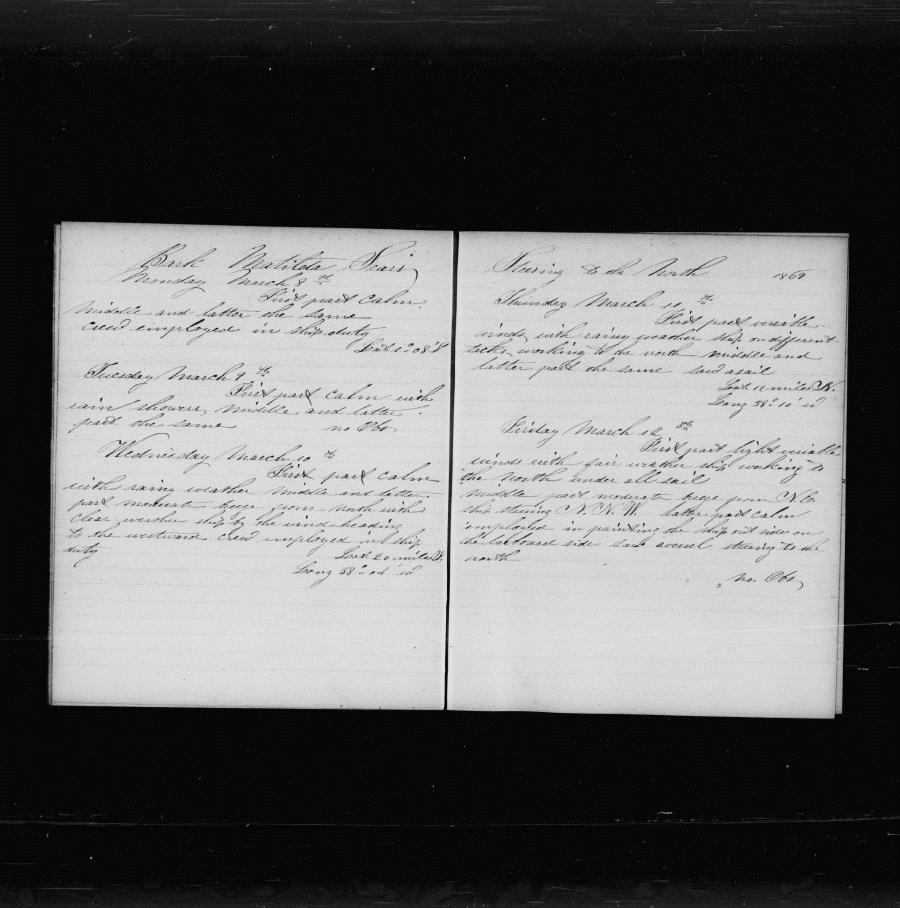 Bark Matilda Sears
Monday March 8th
First part calm
middle and latter the same
crew employed in ship duty
Lat 1° 08' S
Tuesday March 9th
First part calm with
rain showers middle and latter
part the same no Obs
Wednesday March 10th
First part calm
with rainy weather middle and latter
part moderate breze from North with
clear weather ship by the wind heading
to the westward crew employed in ship
duty
Lat 20 miles S.
Long 38° 04' W
Steering to the North 1869
Thursday March 11th
First part varible
winds with rainy weather ship on different
tacks working to the north middle and
latter part the same saw a sail
Lat. 12 miles N.
Long 38° 10' W
Firday March 12th
First part light variable
winds with fair weather ship working to
the North under all sail
middle part moderate breze from N.E
ship stering N.N.W. latter part calm
employed in painting the ship out side on
the larboard side saw a vessel steering to the
north
no. Obs